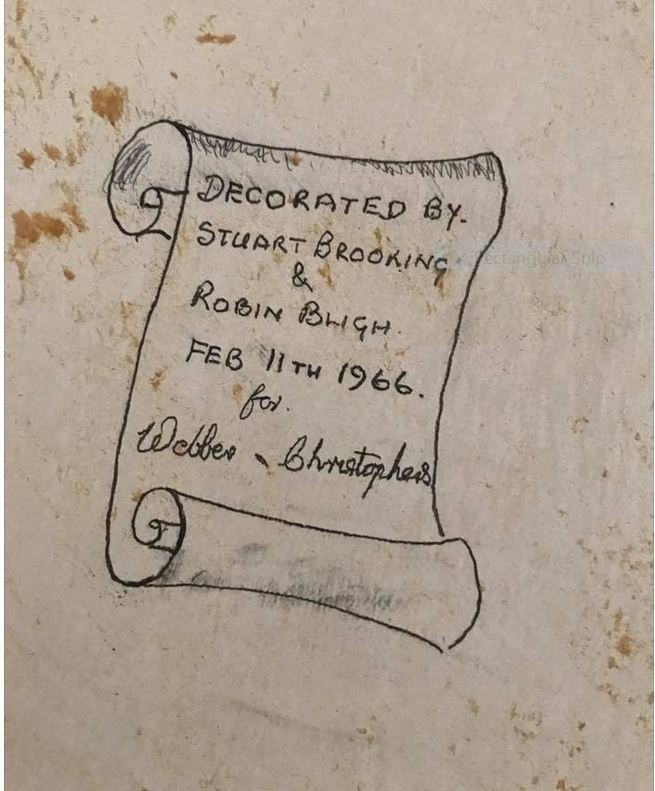 DECORATED BY.
STUART BROOKING
&
ROBIN BLIGH.
FEB 11TH 1966.
for.
Webber & Christophers
Rectangular Snip